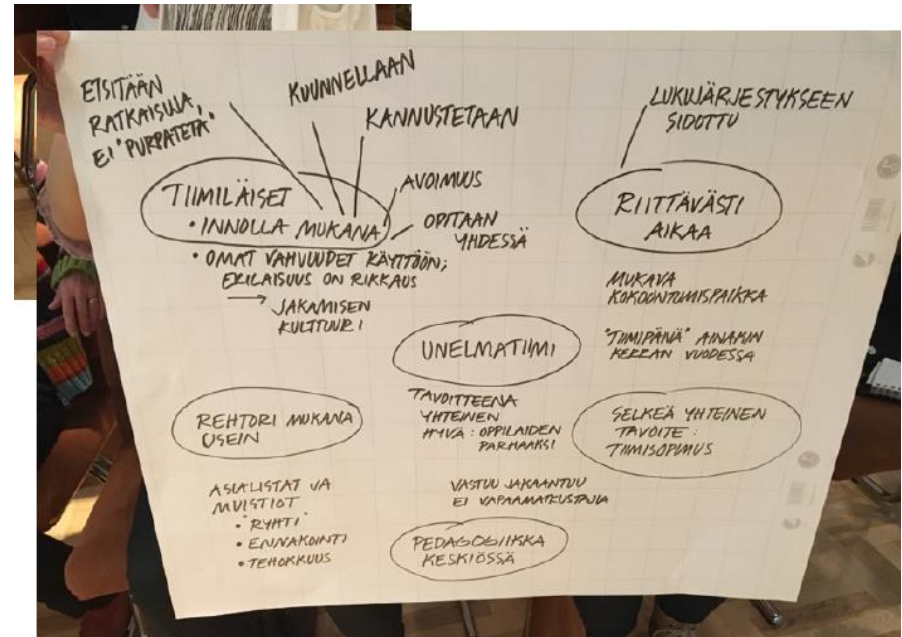 ETSITÄÄN
RATKAISUJA,
EI "PURPATETA"
KUUNNELLAAN
KANNUSTETAAN
TIIMILÄISET
• INNOLLA MUKANA
AVOIMUUS
OPITAAN
YHDESSÄ
• OMAT VAHVUUDET KÄYTTÖÖN;
ERILAISUUS ON RIKKAUS
→ JAKAMISEN
KULTTUURI
LUKUJÄRJESTYKSEEN
SIDOTTU
RIITTÄVÄSTI
AIKAA
MUKAVA
KOKOONTUMISPAIKKA
"TIIMIPÄIVÄ" AINAKIN
KERRAN VUODESSA
UNELMATIIMI
TAVOITTEENA
YHTEINEN
HYVÄ: OPPILAIDEN
PARHAAKSI
REHTORI MUKANA
USEIN
SELKEÄ YHTEINEN
TAVOITE:
TIIMISOPIMUS
ASIALISTAT JA
MUISTIOT
• "RYHTI"
• ENNAKOINTI
• TEHOKKUUS
VASTUU JAKAANTUU
EI VAPAAMATKUSTAJIA
PEDAGOGIIKKA
KESKIÖSSÄ